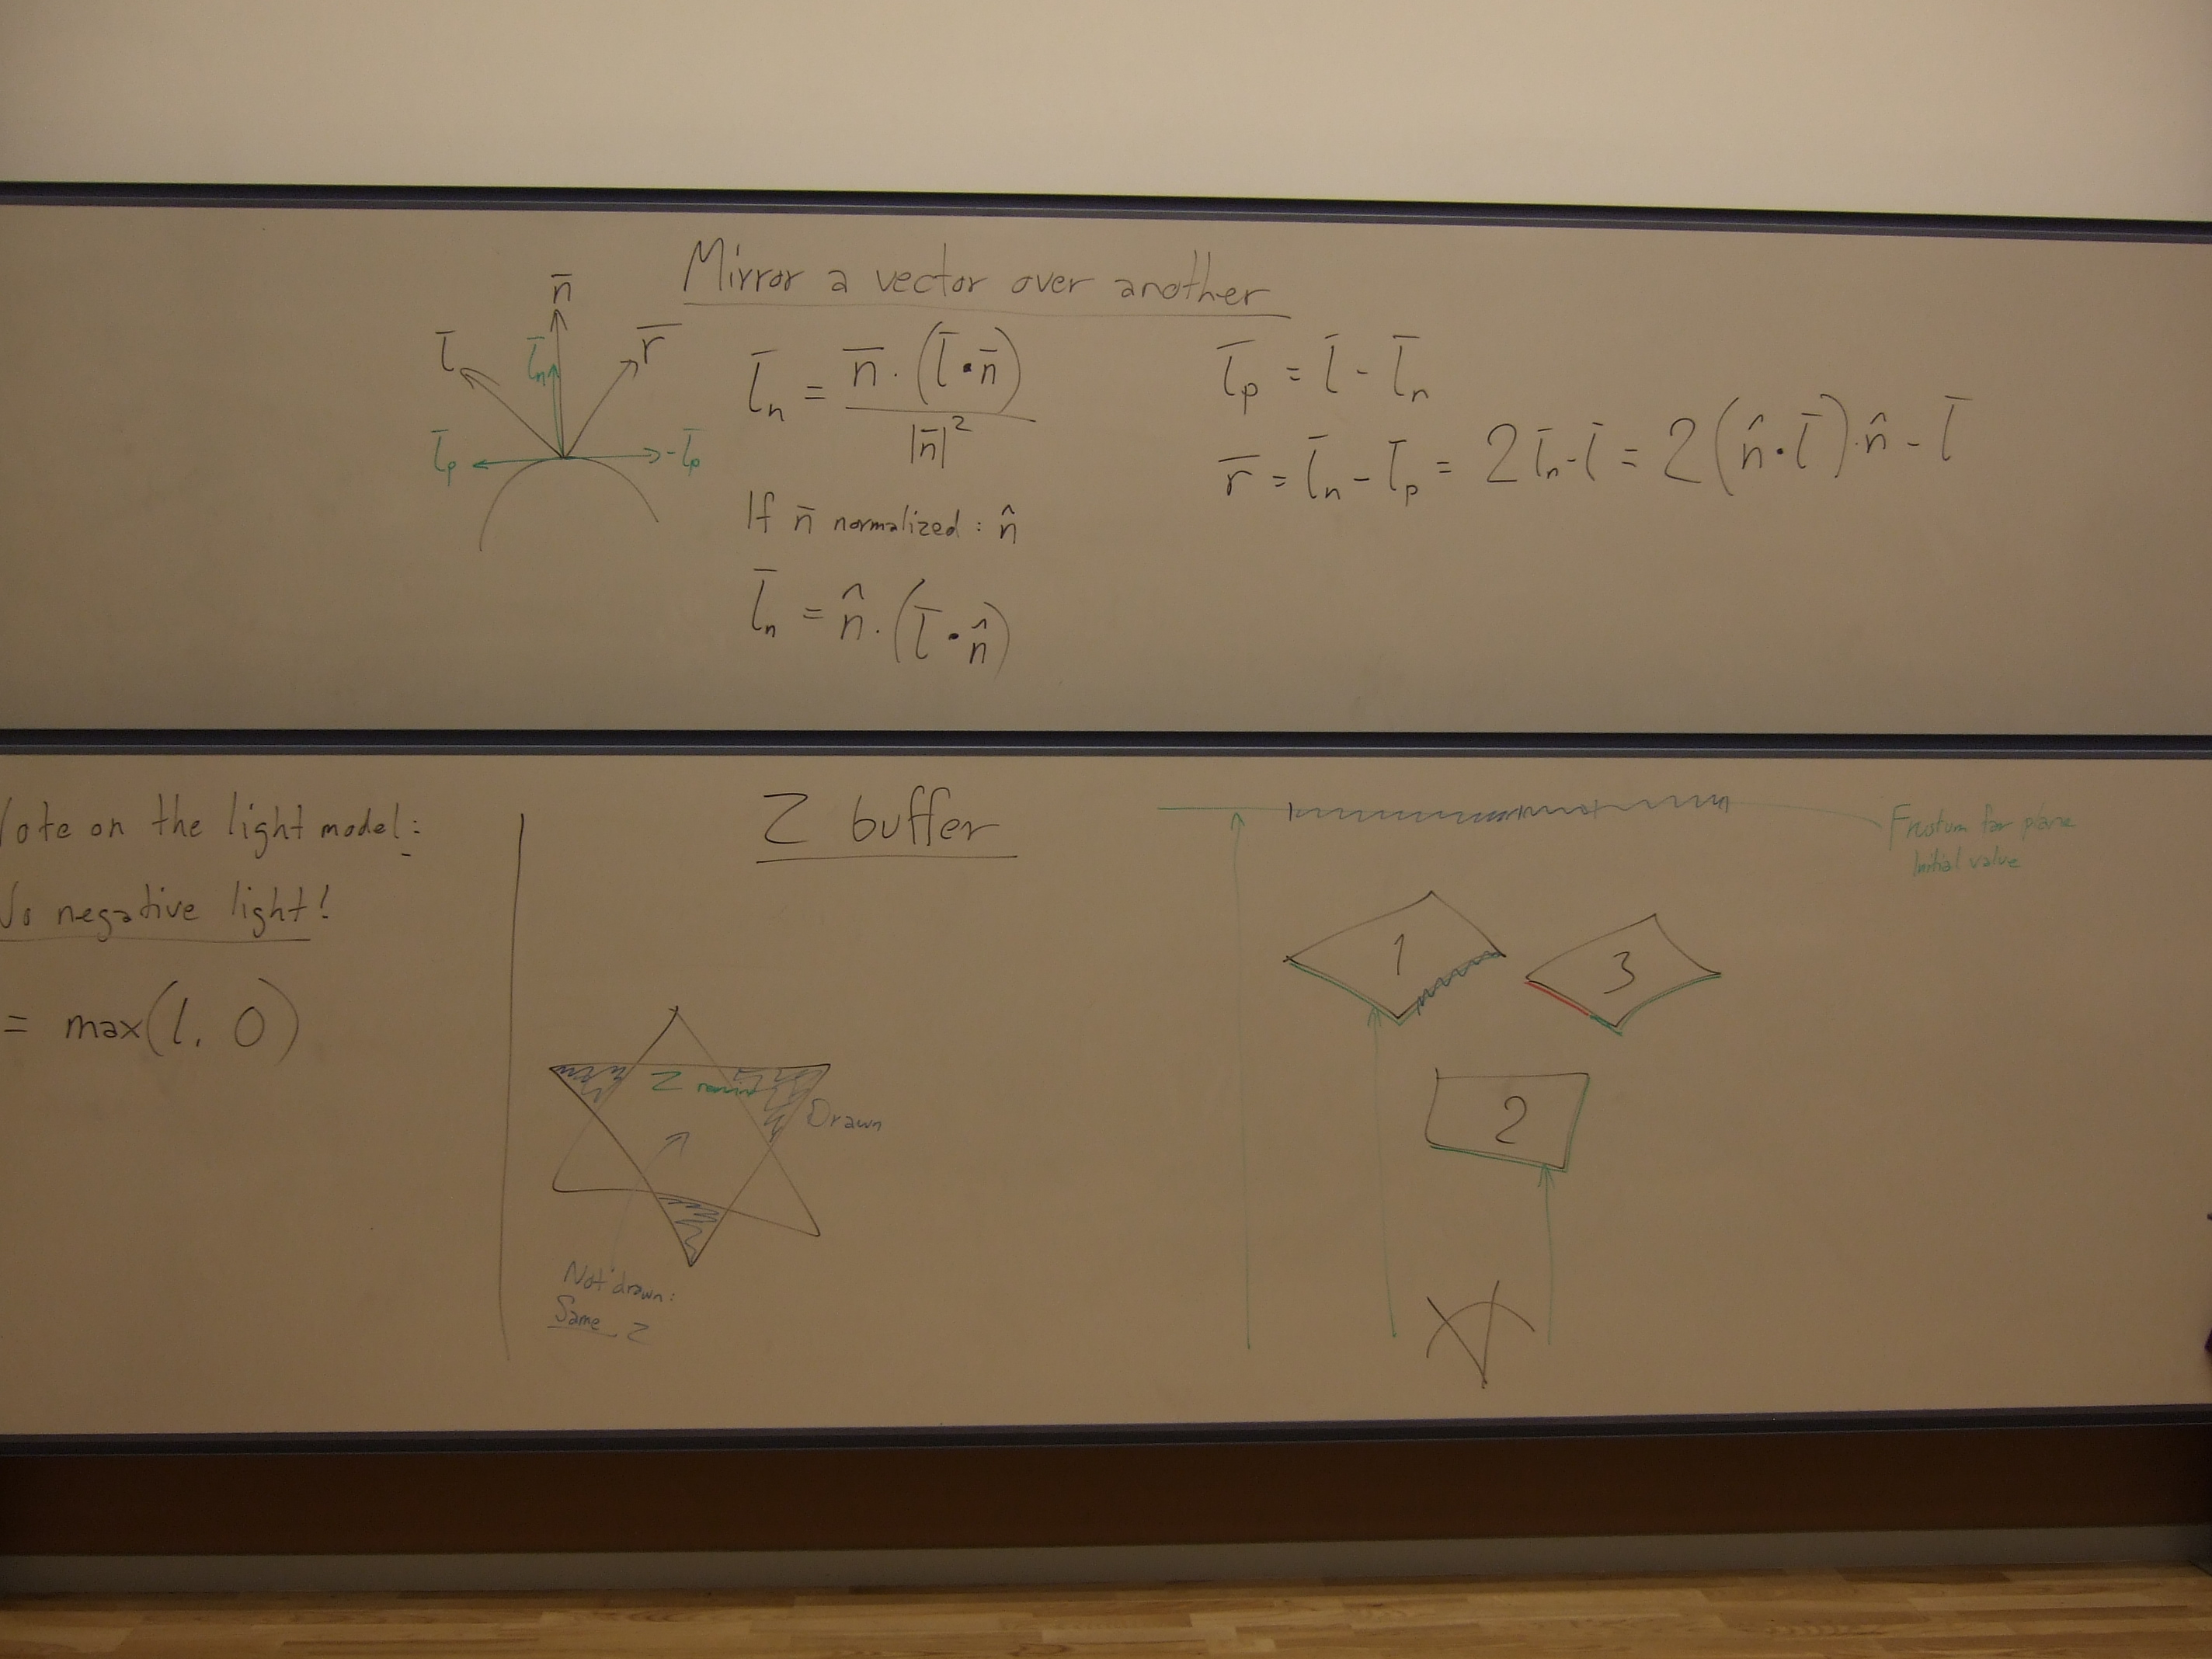 Mirror a vector over another
n̄
l̄
l̄ₙ
r̄
l̄ₚ
-l̄ₚ
l̄ₙ = n̄ · (l̄ • n̄) / |n̄|²
If n̄ normalized : n̂
l̄ₙ = n̂ · (l̄ • n̂)
l̄ₚ = l̄ - l̄ₙ
r̄ = l̄ₙ - l̄ₚ = 2 l̄ₙ - l̄ = 2 (n̂ • l̄) · n̂ - l̄
ote on the light model:
o negative light!
= max(l, 0)
Z buffer
Z
Drawn
Not drawn:
Same Z
Frustum far plane
Initial value
1
3
2